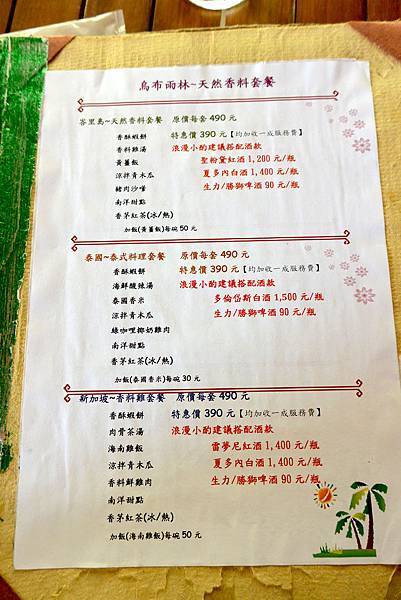 烏布雨林~天然香料套餐
峇里島~天然香料套餐 原價每套 490 元
香酥蝦餅 特惠價 390 元【均加收一成服務費】
香料雞湯 浪漫小酌建議搭配酒款
黃薑飯 聖粉黛紅酒 1,200 元/瓶
涼拌青木瓜 夏多內白酒 1,400 元/瓶
豬肉沙嗲 生力/勝獅啤酒 90 元/瓶
南洋甜點
香茅紅茶(冰/熱)
加飯(黃薑飯)每碗 50 元
泰國~泰式料理套餐 原價每套 490 元
香酥蝦餅 特惠價 390 元【均加收一成服務費】
海鮮酸辣湯 浪漫小酌建議搭配酒款
泰國香米 多倫岱斯白酒 1,500 元/瓶
涼拌青木瓜 生力/勝獅啤酒 90 元/瓶
綠咖哩椰奶雞肉
南洋甜點
香茅紅茶(冰/熱)
加飯(泰國香米)每碗 30 元
新加坡~香料雞套餐 原價每套 490 元
香酥蝦餅 特惠價 390 元【均加收一成服務費】
肉骨茶湯 浪漫小酌建議搭配酒款
海南雞飯 雷夢尼紅酒 1,400 元/瓶
涼拌青木瓜 夏多內白酒 1,400 元/瓶
香料鮮雞肉 生力/勝獅啤酒 90 元/瓶
南洋甜點
香茅紅茶(冰/熱)
加飯(海南雞飯)每碗 50 元